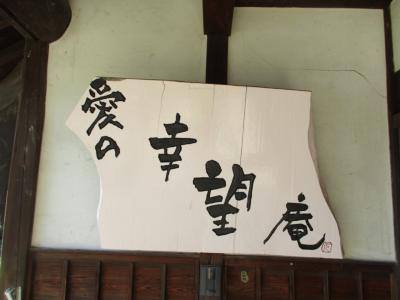 愛の幸望庵